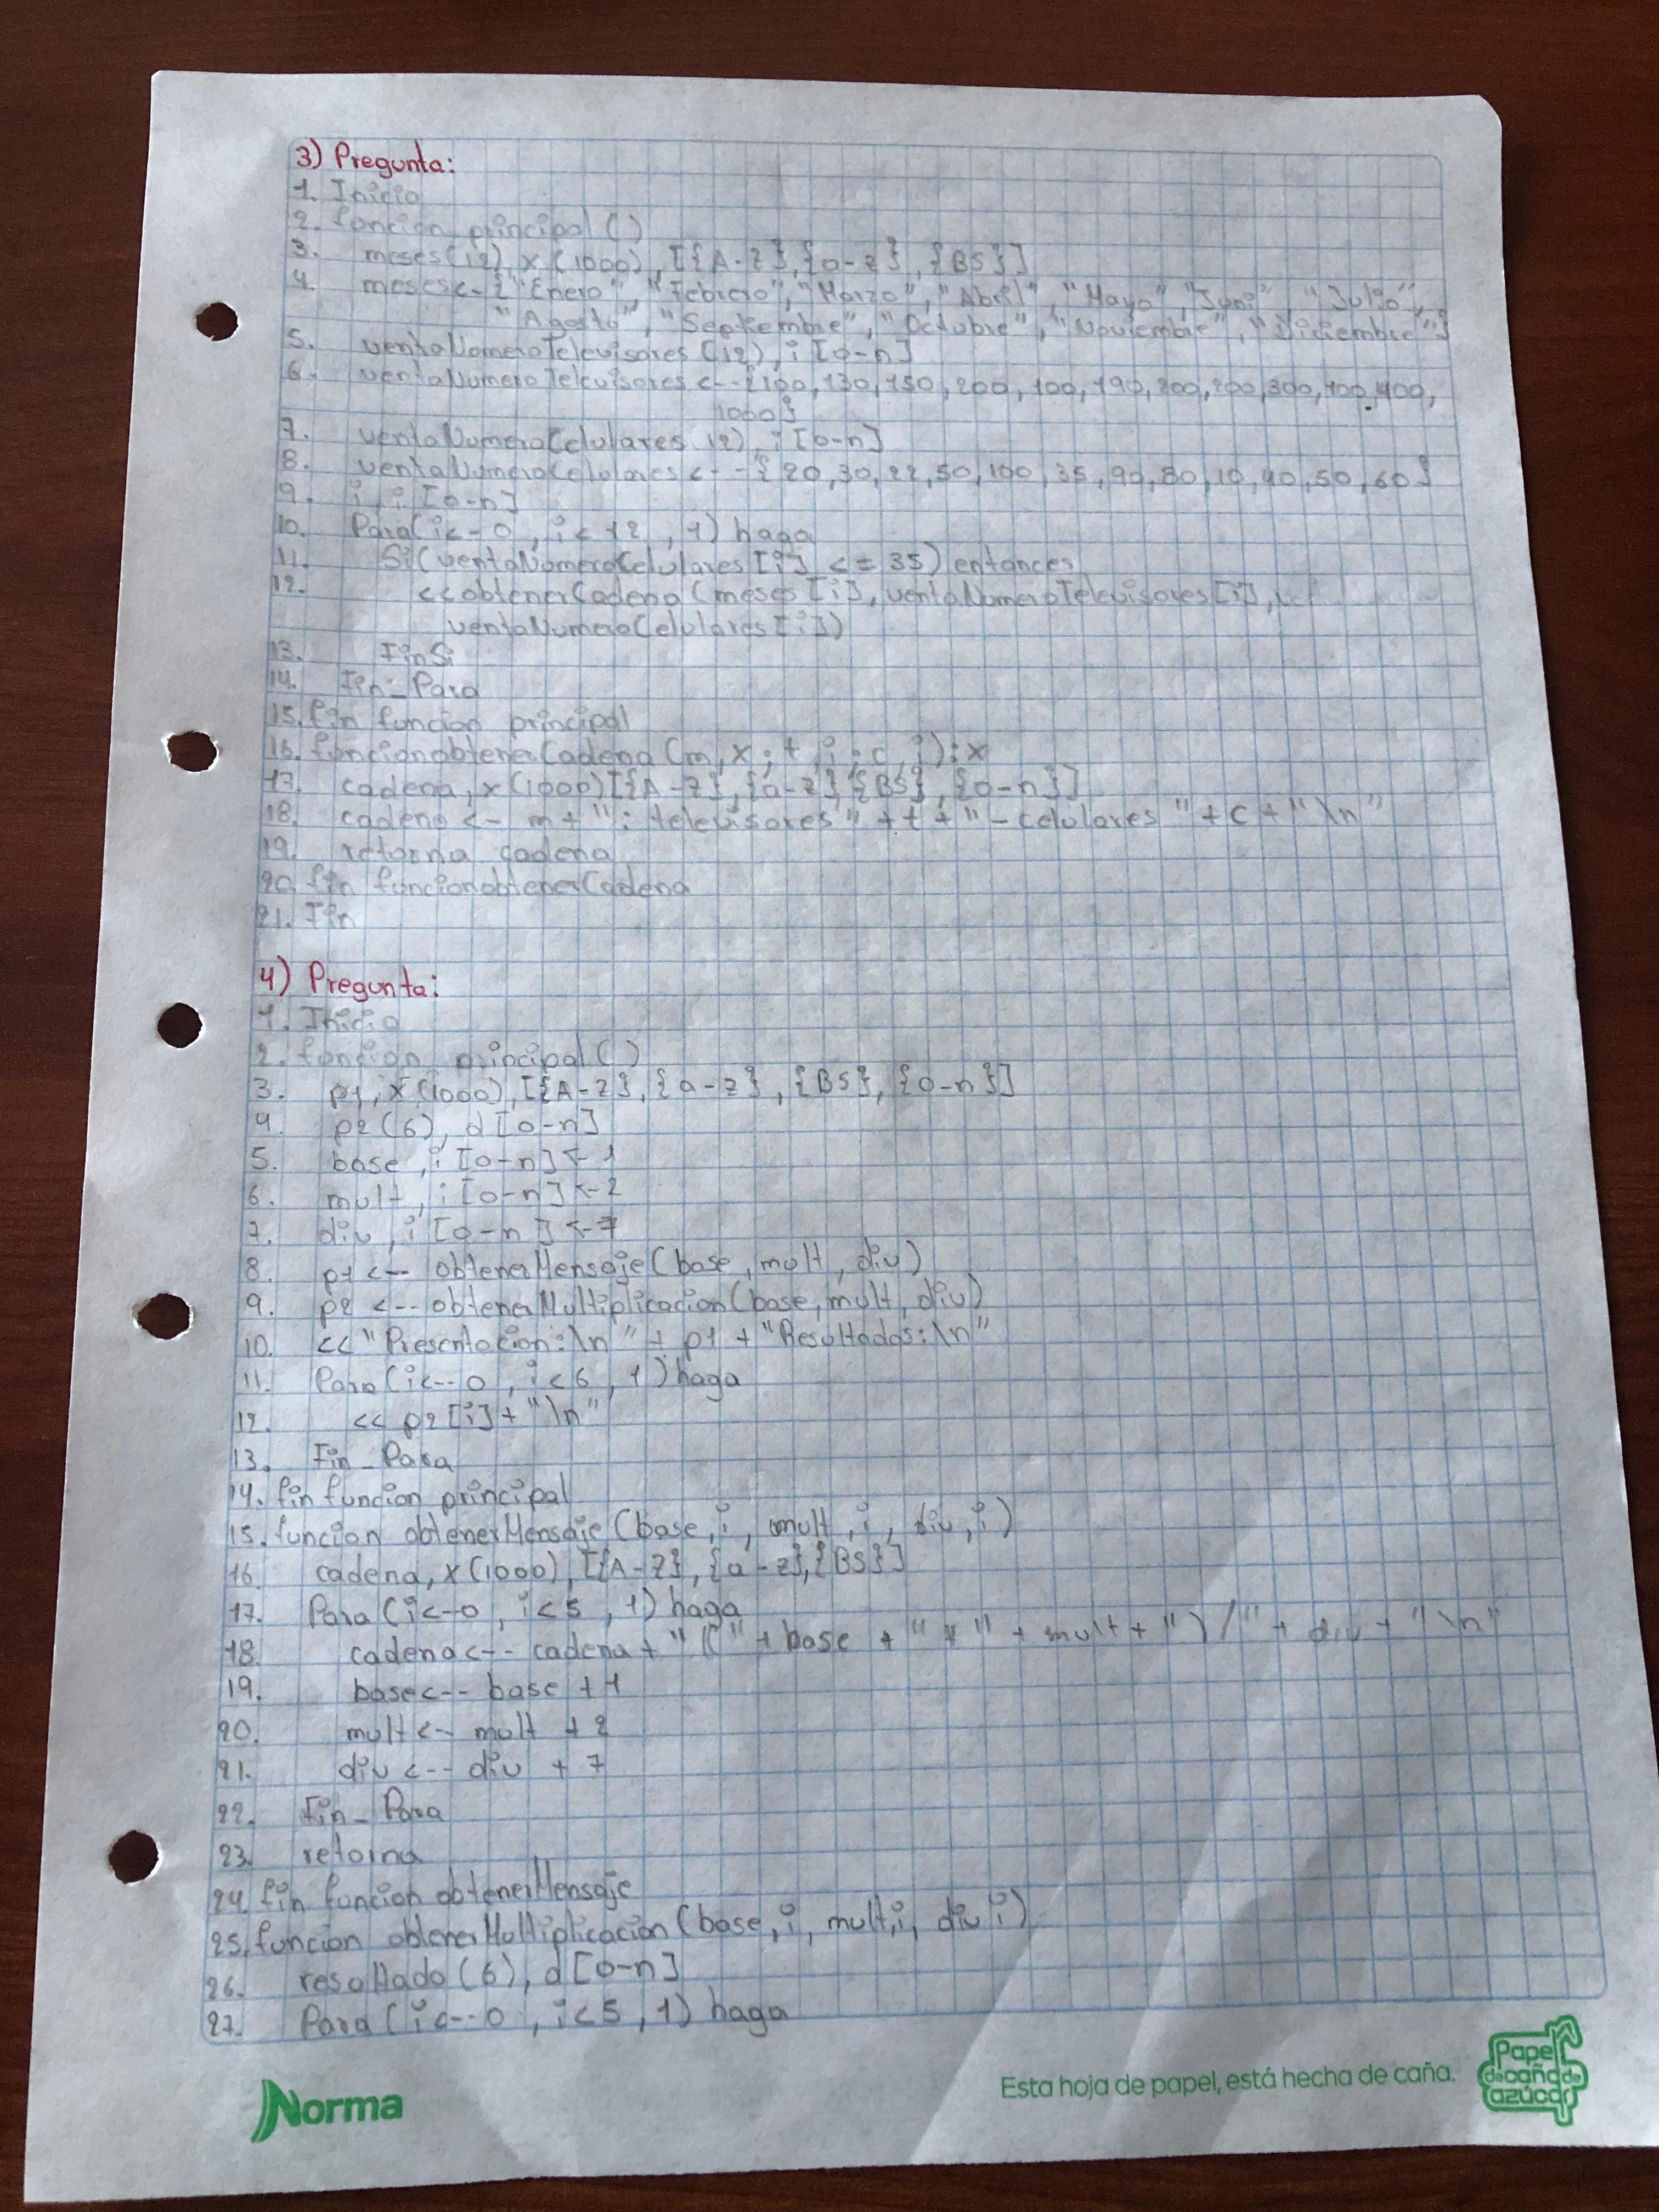 3) Pregunta:
1. Inicio
2. funcion principal ()
3. meses(12), x (1000), [{A-Z},{a-z},{BS}]
4. meses<--{"Enero", "Febrero", "Marzo", "Abril", "Mayo", "Juni", "Julio",
"Agosto", "Septiembre", "Octubre", "Noviembre", "Diciembre"}
5. ventaNumeroTelevisores (12), i [0-n]
6. ventaNumeroTelevisores <--{100, 130, 150, 200, 100, 190, 200, 200, 300, 100, 400,
1000}
7. ventaNumeroCelulares 12), i [0-n]
8. ventaNumeroCelulares <--{20, 30, 22, 50, 100, 35, 90, 80, 10, 40, 50, 60}
9. i, i [0-n]
10. Para(i<-0, i<12, 1) haga
11. Si(ventaNumeroCelulares[i] <= 35) entonces
12. <<obtenerCadena(meses[i], ventaNumeroTelevisores[i],
ventaNumeroCelulares[i])
13. FinSi
14. Fin-Para
15. fin funcion principal
16. funcionobtenerCadena (m, x; t, i; c, i): x
17. cadena, x (1000) [{A-Z}, {a-z} {BS}, {0-n}]
18. cadena <- m + ": televisores" + t + "- celulares "+c+"\n"
19. retorna cadena
20. fin funcionobtenerCadena
21. Fin
4) Pregunta:
1. Inicio
2. funcion principal ()
3. p1, x (1000), [{A-Z}, {a-z}, {BS}, {0-n}]
4. p2 (6), d [0-n]
5. base, i [0-n] <-1
6. mult, i [0-n] <-2
7. div, i [0-n] <-7
8. p1 <-- obtenerMensaje(base, mult, div)
9. p2 <-- obtenerMultiplicacion(base, mult, div)
10. << "Presentacion:\n" + p1 + "Resultados:\n"
11. Para (i<--0, i<6, 1) haga
12. << p2[i]+"\n"
13. Fin_Para
14. fin funcion principal
15. funcion obtenerMensaje (base, i, mult, i, div, i)
16. cadena, x (1000), [{A-Z}, {a-z},{BS}]
17. Para (i<-0, i<5, 1) haga
18. cadena<-- cadena + "(" + base + "*" + mult + ")/" + div + "\n"
19. base<-- base +1
20. mult<- mult +2
21. div <-- div + 7
22. Fin_Para
23. retorna
24. fin funcion obtenerMensaje
25. funcion obtenerMultiplicacion (base, i, mult, i, div i)
26. resultado (6), d [0-n]
27. Para (i<--0, i<5, 1) haga
Norma
Esta hoja de papel, está hecha de caña.
Papel de caña de azúcar